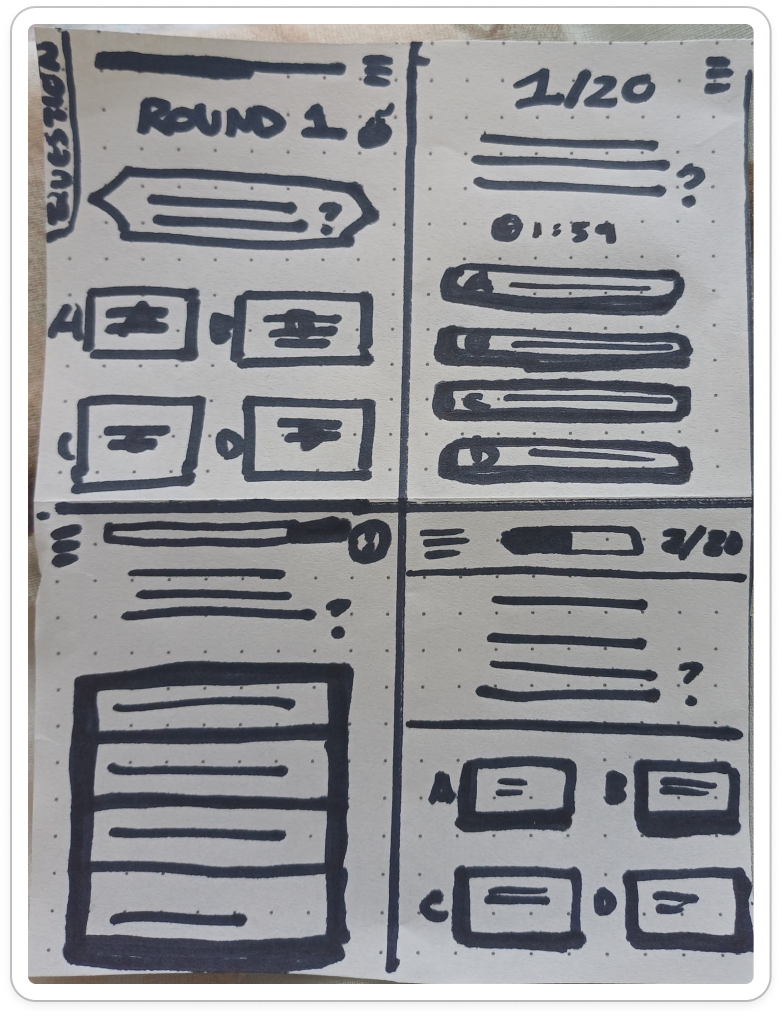 QUESTION
ROUND 1
?
A
B
C
D
1/20
?
1:59
A
B
C
D
?
2/20
?
A
B
C
D